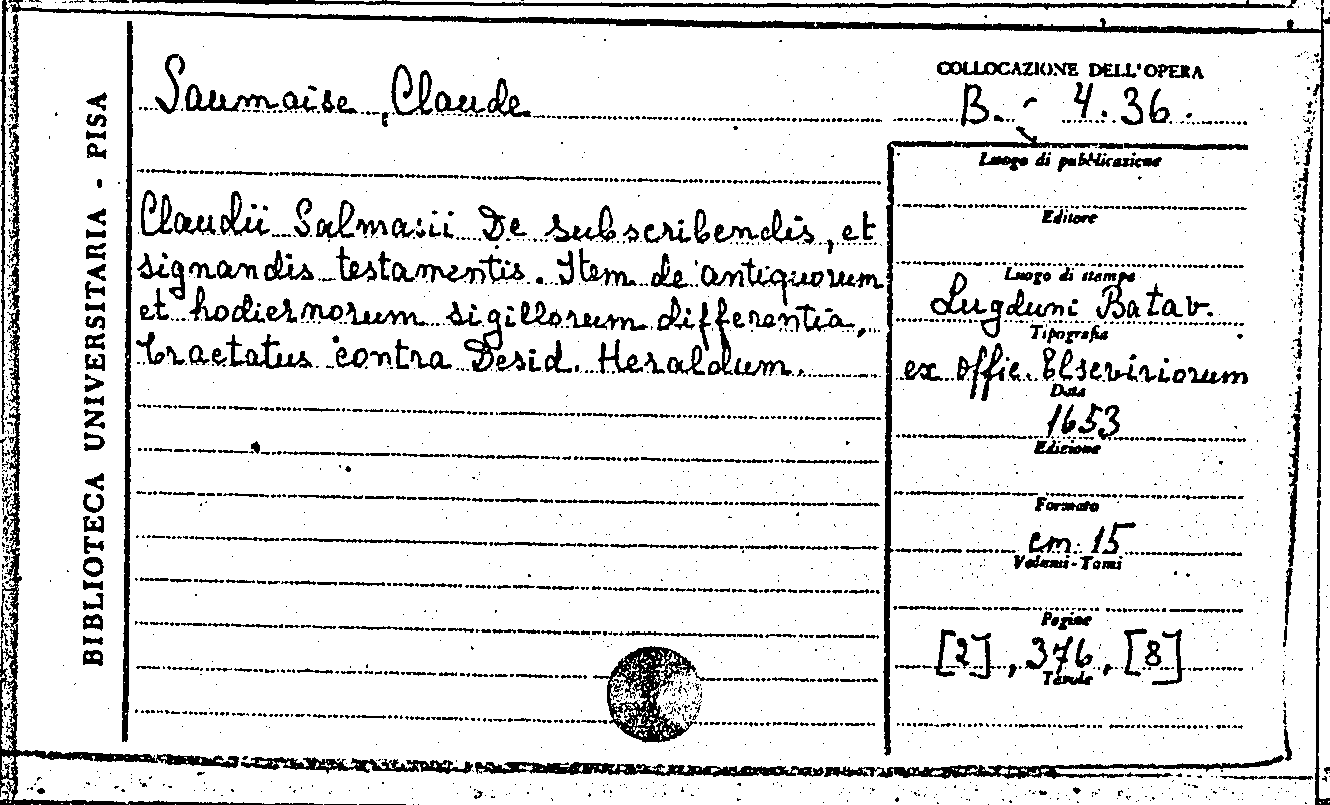 BIBLIOTECA UNIVERSITARIA - PISA
Saumaise, Claude
Claudii Salmasii De subscribendis, et
signandis testamentis. Item de antiquorum
et hodiernorum sigillorum differentia,
tractatus contra Desid. Heraldum.
COLLOCAZIONE DELL'OPERA
B. - 4.36.
Luogo di pubblicazione
Editore
Luogo di stampa
Lugduni Batav.
Tipografia
ex offic. Elseviriorum
Data
1653
Edizione
Formato
cm. 15
Volumi-Tomi
Pagine
[2], 376, [8]
Tavole